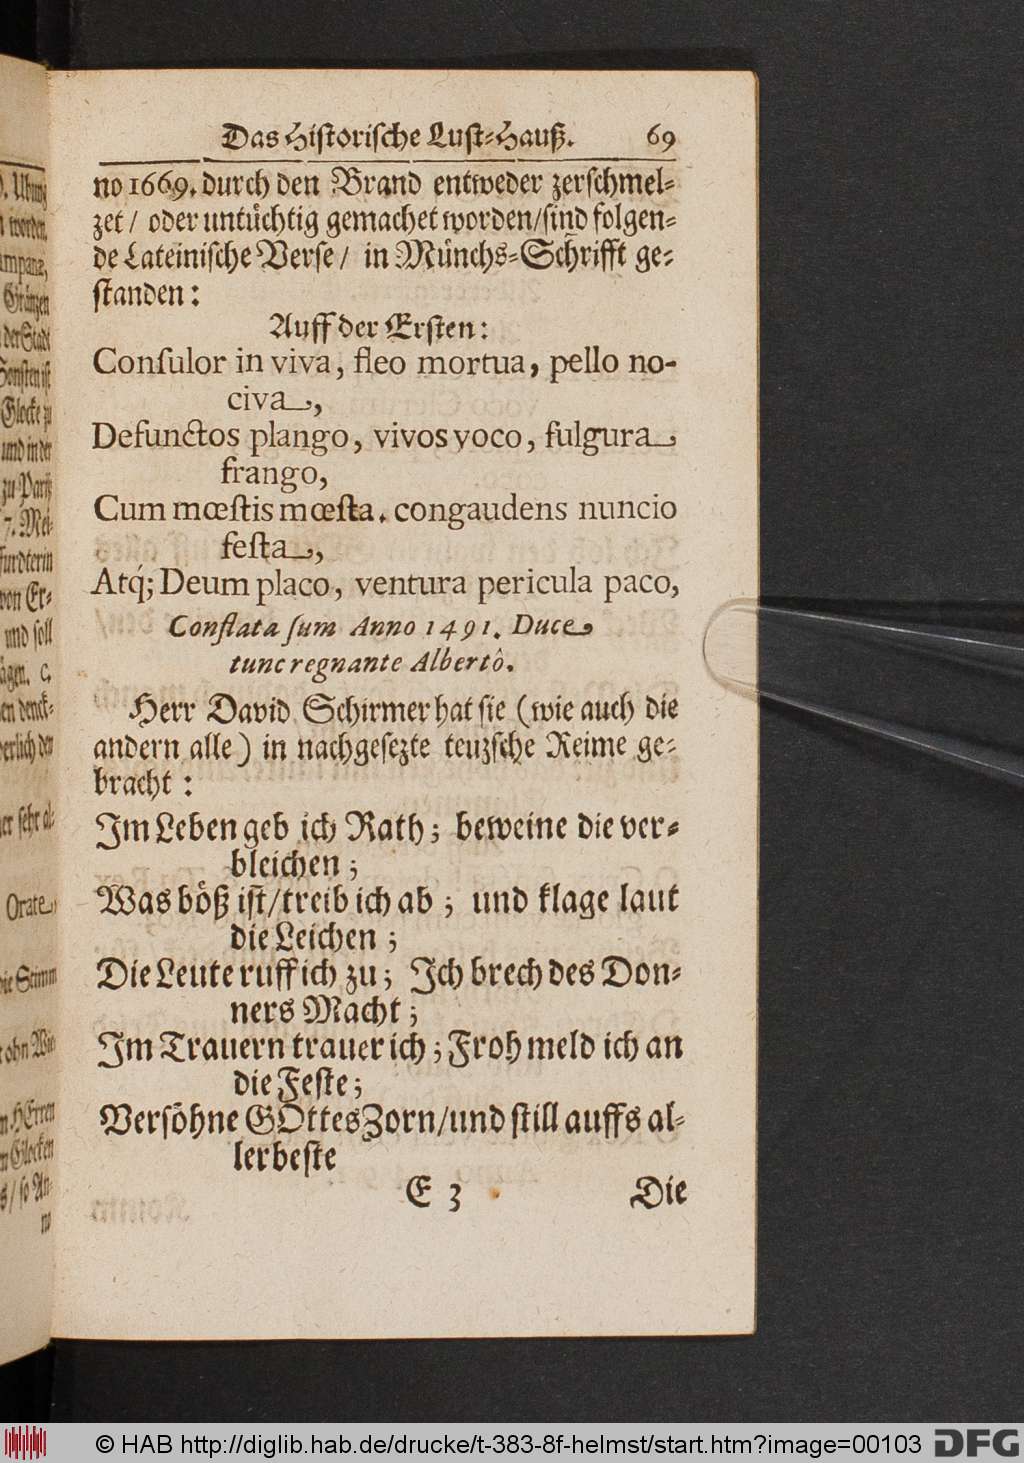 Das Historische Lust-Hauß. 69
no 1669. durch den Brand entweder zerschmel-
zet / oder untüchtig gemachet worden / sind folgen-
de Lateinische Verse / in Münchs-Schrifft ge-
standen:
Auff der Ersten:
Conſulor in viva, fleo mortua, pello no-
civa,
Defunctos plango, vivos voco, fulgura
frango,
Cum mœstis mœsta. congaudens nuncio
festa,
Atq́; Deum placo, ventura pericula paco,
Conflata ſum Anno 1491. Duce
tunc regnante Albertô.
Herr David Schirmer hat sie (wie auch die
andern alle) in nachgesezte teuzsche Reime ge-
bracht:
Im Leben geb ich Rath; beweine die ver-
bleichen;
Was böß ist / treib ich ab; und klage laut
die Leichen;
Die Leute ruff ich zu; Ich brech des Don-
ners Macht;
Im Trauern trauer ich; Froh meld ich an
die Feste;
Versöhne GOttes Zorn / und still auffs al-
lerbeste
E 3 Die
worden,
Gräntzen
der Stadt
Sonsten ist
Glocke zu
und in der
zu Pariß
7. Mei-
von Er-
und soll
en denck-
er sehr al-
Orate
die Stimm
n HErren
n Glocken
s / so An-
no
© HAB http://diglib.hab.de/drucke/t-383-8f-helmst/start.htm?image=00103 DFG